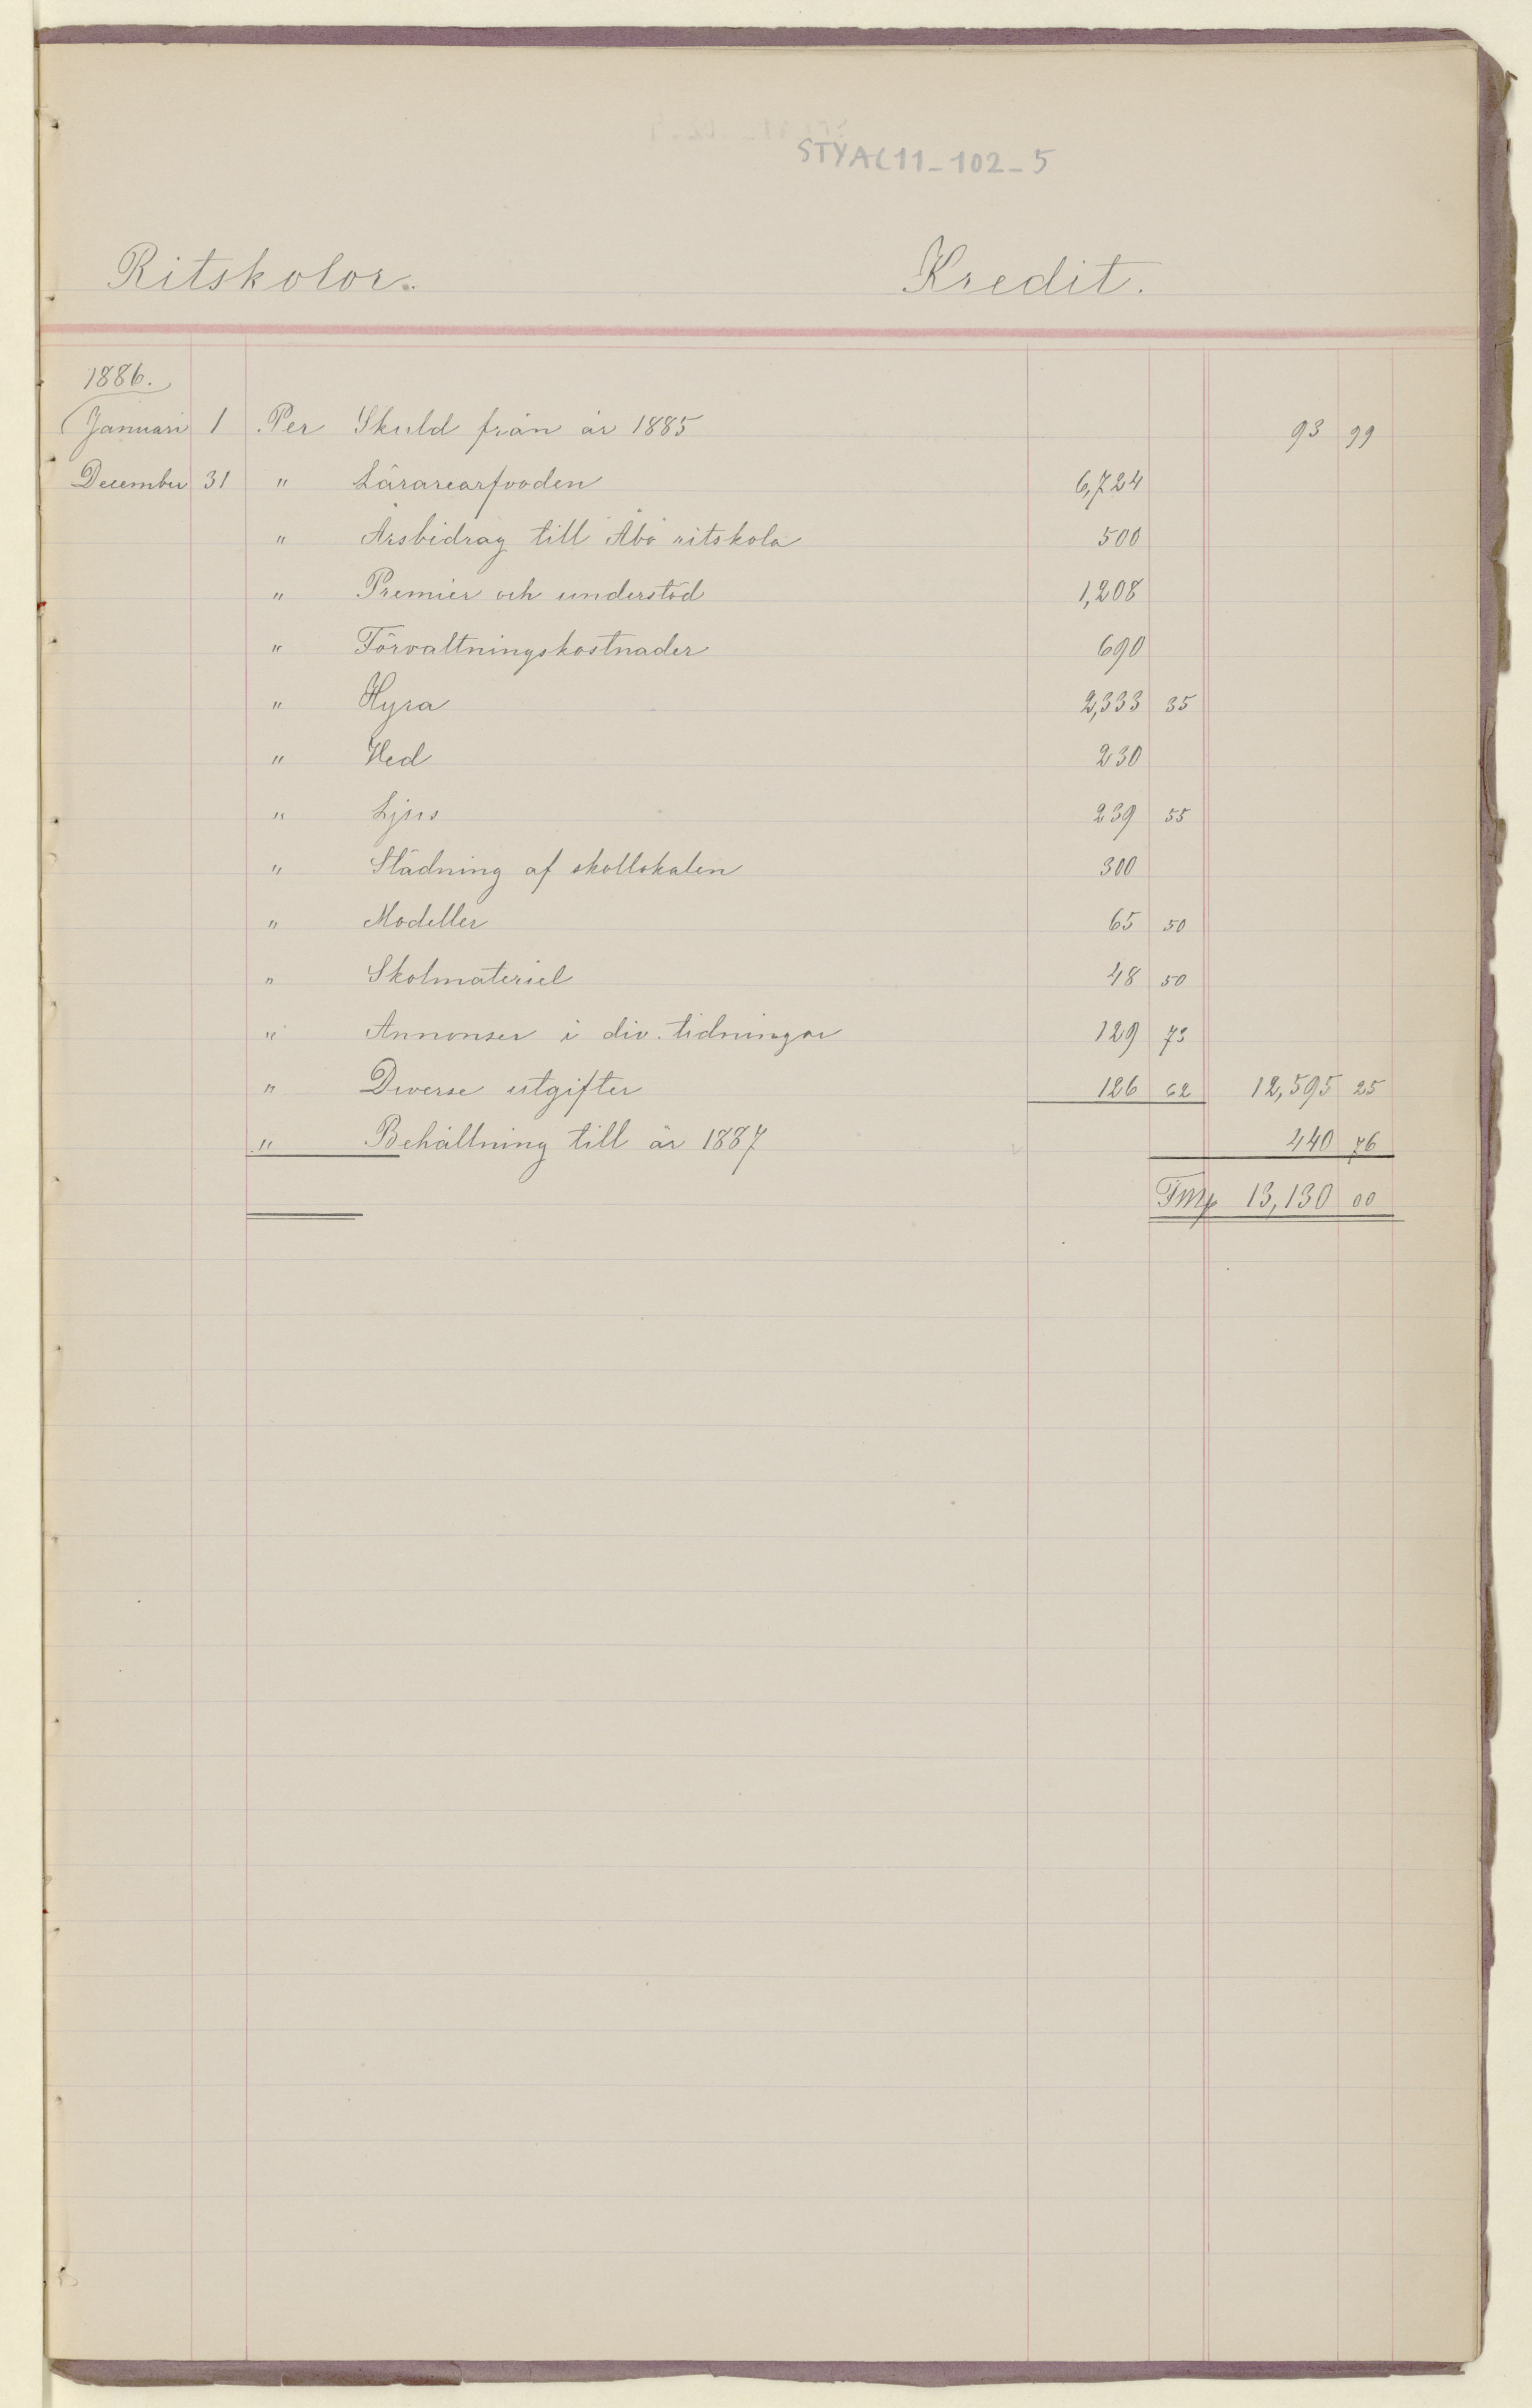 STYAC11_102_5
Ritskolor. Kredit.
1886.
Januari 1 Per Skuld från år 1885 93 99
December 31 " Lärarearfvoden 6,724
" Årsbidrag till Åbo ritskola 500
" Premier och understöd 1,208
" Förvaltningskostnader 690
" Hyra 2,333 35
" Ved 230
" Ljus 239 55
" Städning af skollokalen 300
" Modeller 65 50
" Skolmateriel 48 50
" Annonser i div. tidningar 129 73
" Diverse utgifter 126 62 12,595 25
" Behållning till år 1887 440 76
Fmk 13,130 00